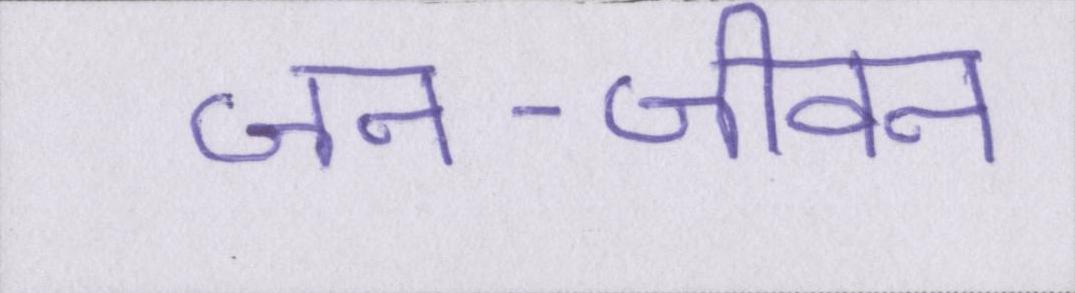 जन-जीवन